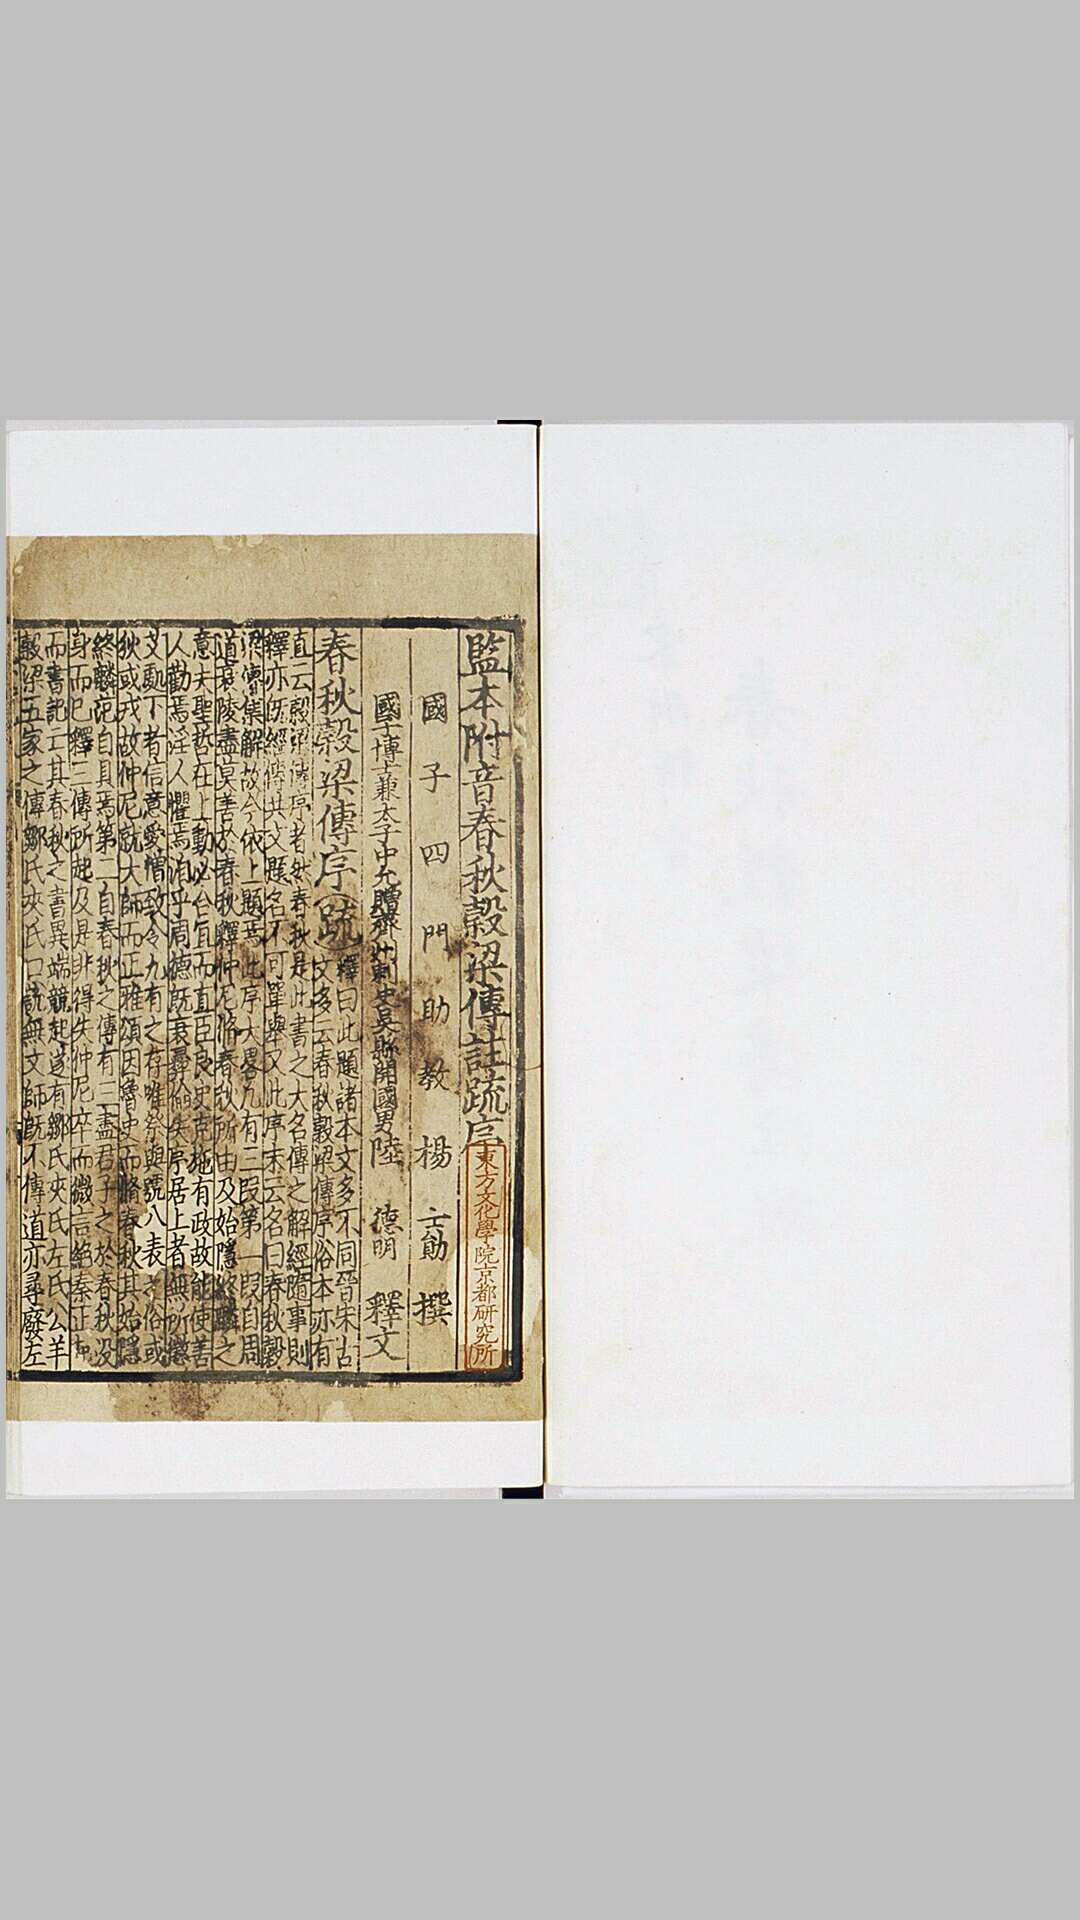 監本附音春秋穀梁傳註疏序
東方文化學院京都研究所
國子四門助教楊士勛撰
國子博士兼太子中允贈齊州刺史吳縣開國男陸德明釋文
春秋穀梁傳序疏釋曰此題諸本文多不同晉宋古
文多云春秋穀梁傳序俗本亦有
直云穀梁傳序者然春秋是此書之大名傳之解經隨事則
釋亦既經傳共文題名不可單舉又此序末云名曰春秋穀
梁傳集解故今依上題焉此序大畧凡有三段第一段自周
道衰陵盡莫善於春秋釋仲尼脩春秋所由及始隱終麟之
意夫聖哲在上動必合宜而直臣良史克施有政故能使善
人勸焉淫人懼焉洎乎周德既衰彝倫失序居上者無所懲
艾馭下者信意愛憎致令九有之存唯祭與號八表之俗或
狄或戎故仲尼就大師而正雅頌因魯史而脩春秋其始隱
終麟范自具焉第二自春秋之傳有三盡君子之於春秋没
身而已釋三傳所起及是非得失仲尼卒而微言絕秦正起
而書記亡其春秋之書異端競起遂有鄒氏夾氏左氏公羊
穀梁五家之傳鄒氏夾氏口說無文師既不傳道亦尋廢左